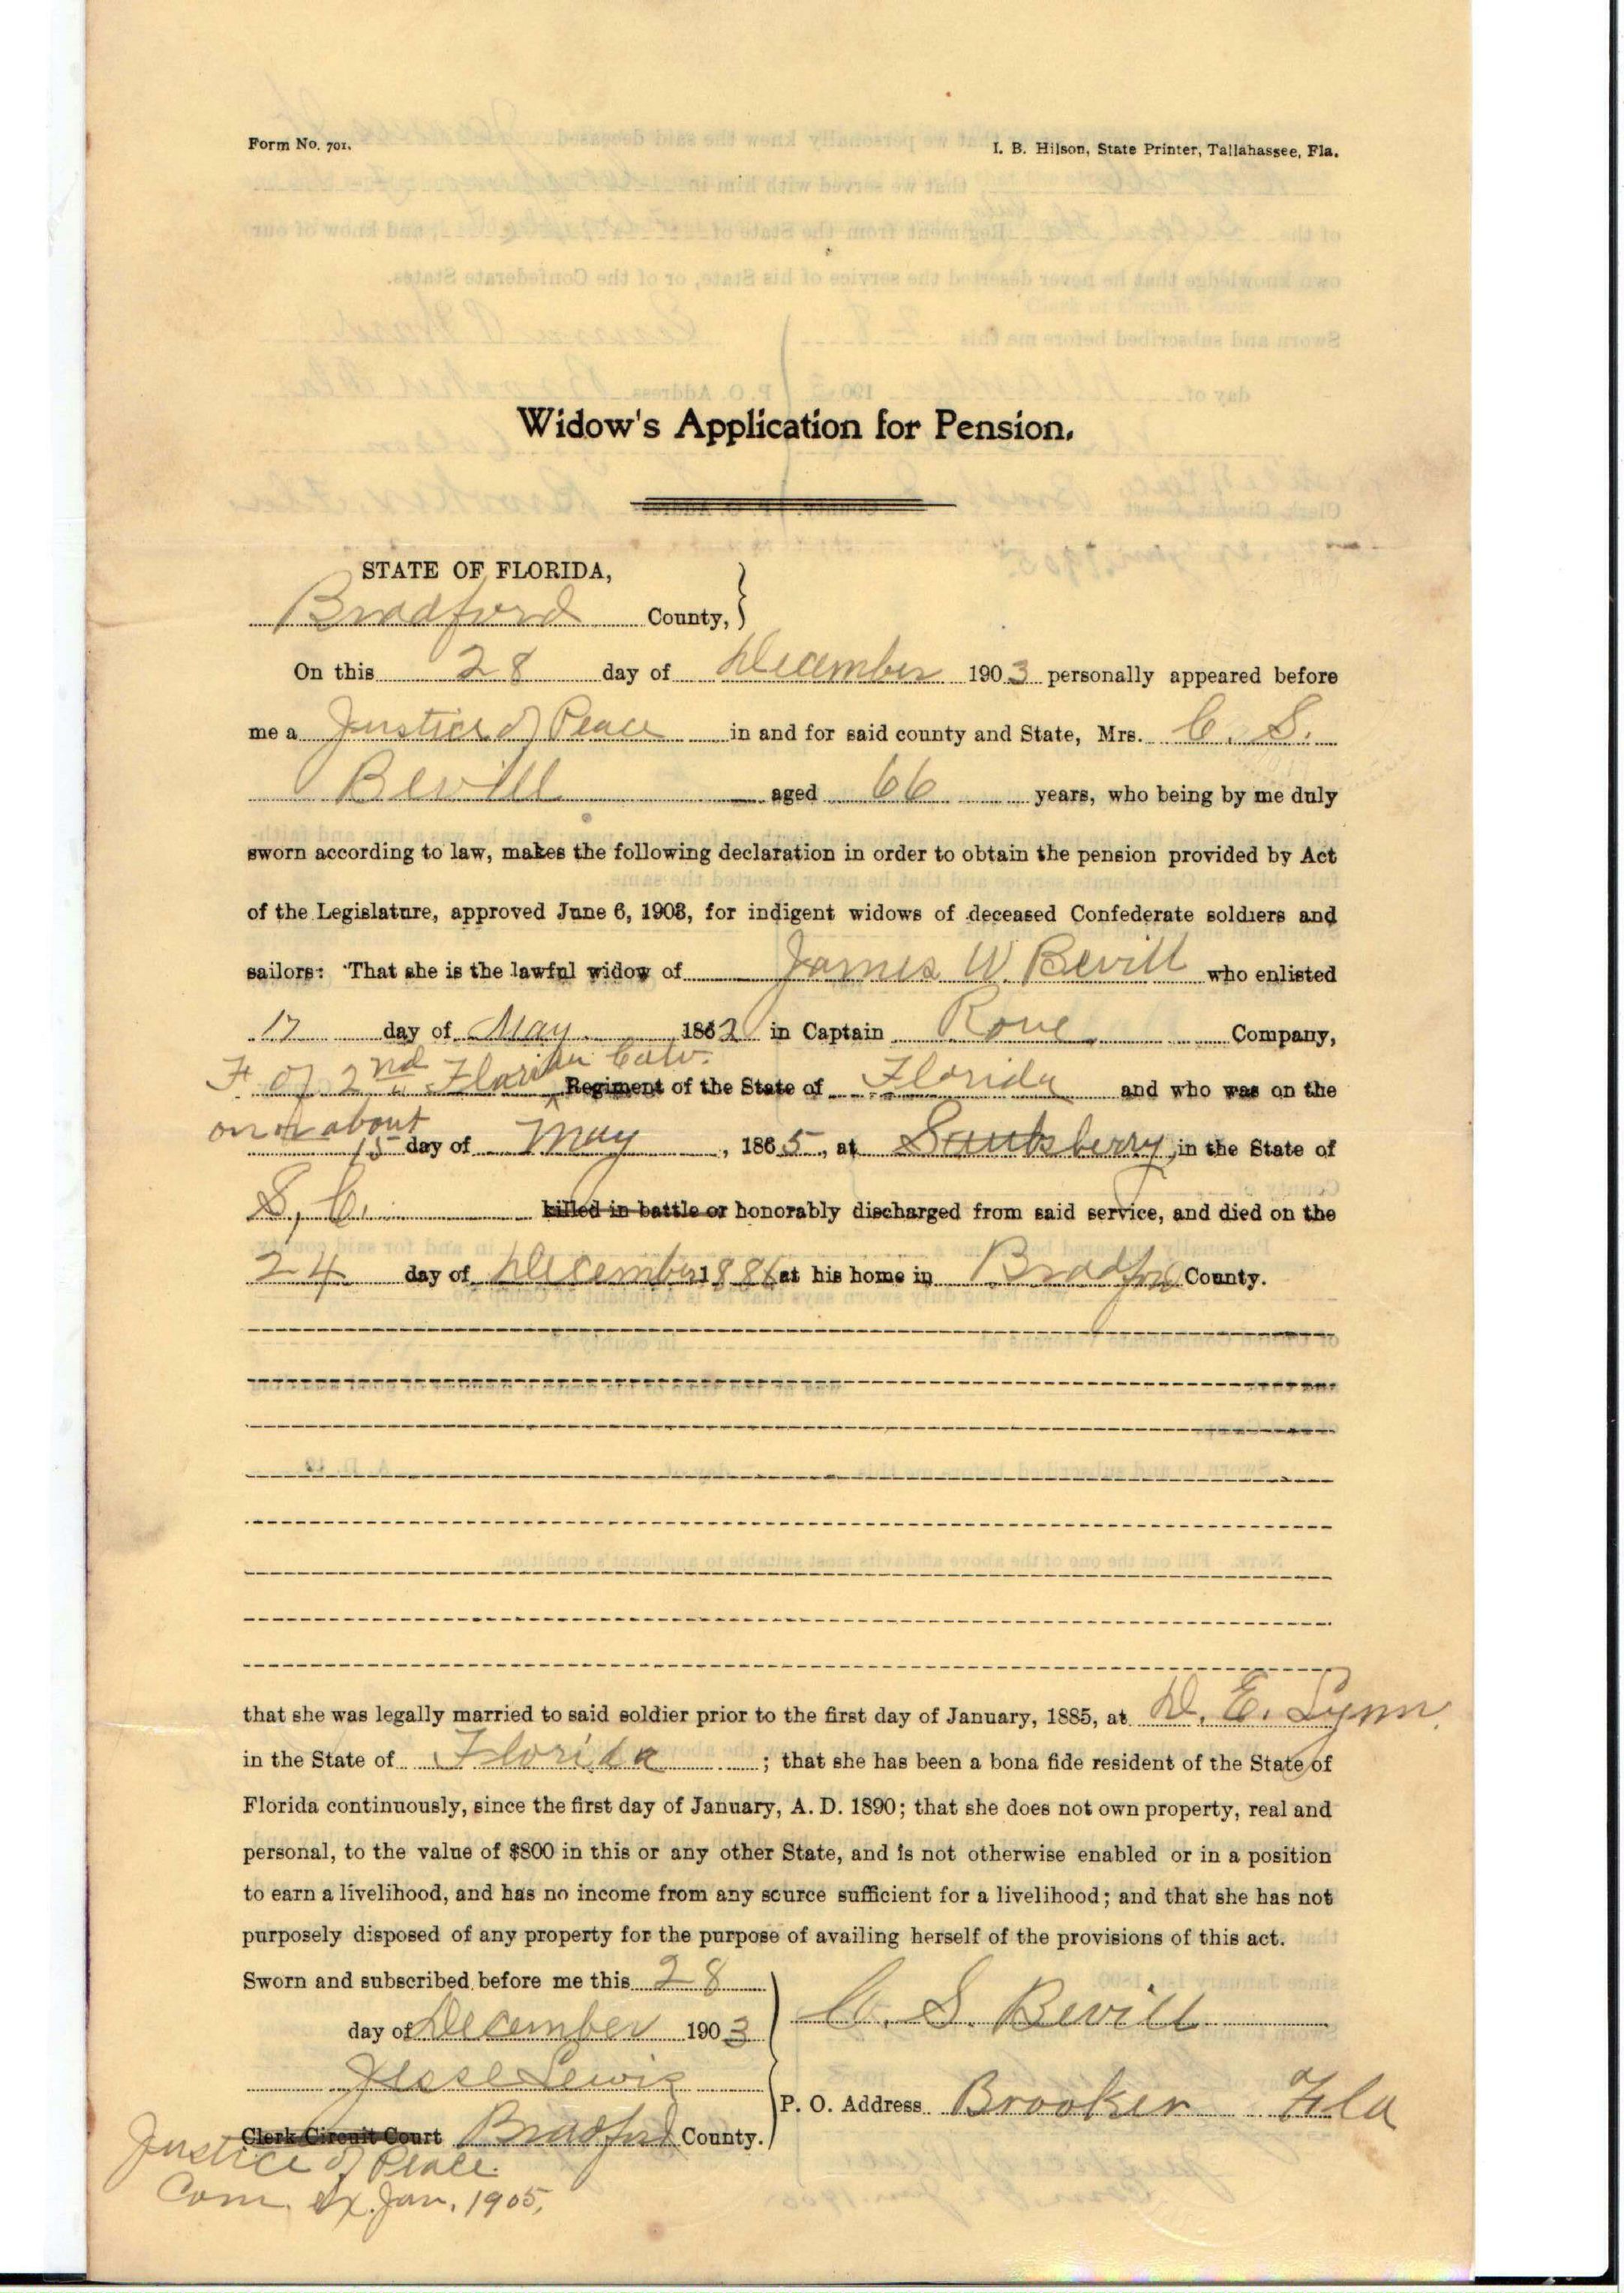 Form No. 701.
I. B. Hilson, State Printer, Tallahassee, Fla.
Widow's Application for Pension.
STATE OF FLORIDA,
Bradford County,
On this 28 day of December 1903 personally appeared before
me a Justice of Peace in and for said county and State, Mrs. C. S.
Bevill aged 66 years, who being by me duly
sworn according to law, makes the following declaration in order to obtain the pension provided by Act
of the Legislature, approved June 6, 1903, for indigent widows of deceased Confederate soldiers and
sailors: That she is the lawful widow of James W. Bevill who enlisted
17 day of May 1862 in Captain Rowe Company,
F of 2nd Florida Calv. Regiment of the State of Florida and who was on the
on or about
15 day of May, 1865, at in the State of
S. C. killed in battle or honorably discharged from said service, and died on the
24 day of December 1886 at his home in Bradford County.
that she was legally married to said soldier prior to the first day of January, 1885, at D. E. Lynn
in the State of Florida; that she has been a bona fide resident of the State of
Florida continuously, since the first day of January, A. D. 1890; that she does not own property, real and
personal, to the value of $800 in this or any other State, and is not otherwise enabled or in a position
to earn a livelihood, and has no income from any source sufficient for a livelihood; and that she has not
purposely disposed of any property for the purpose of availing herself of the provisions of this act.
Sworn and subscribed before me this 28
day of December 1903
C. S. Bevill
Jesse Lewis
P. O. Address Brooker Fla
Clerk Circuit Court Bradford County.
Justice of Peace.
Com. Ex. Jan. 1905.